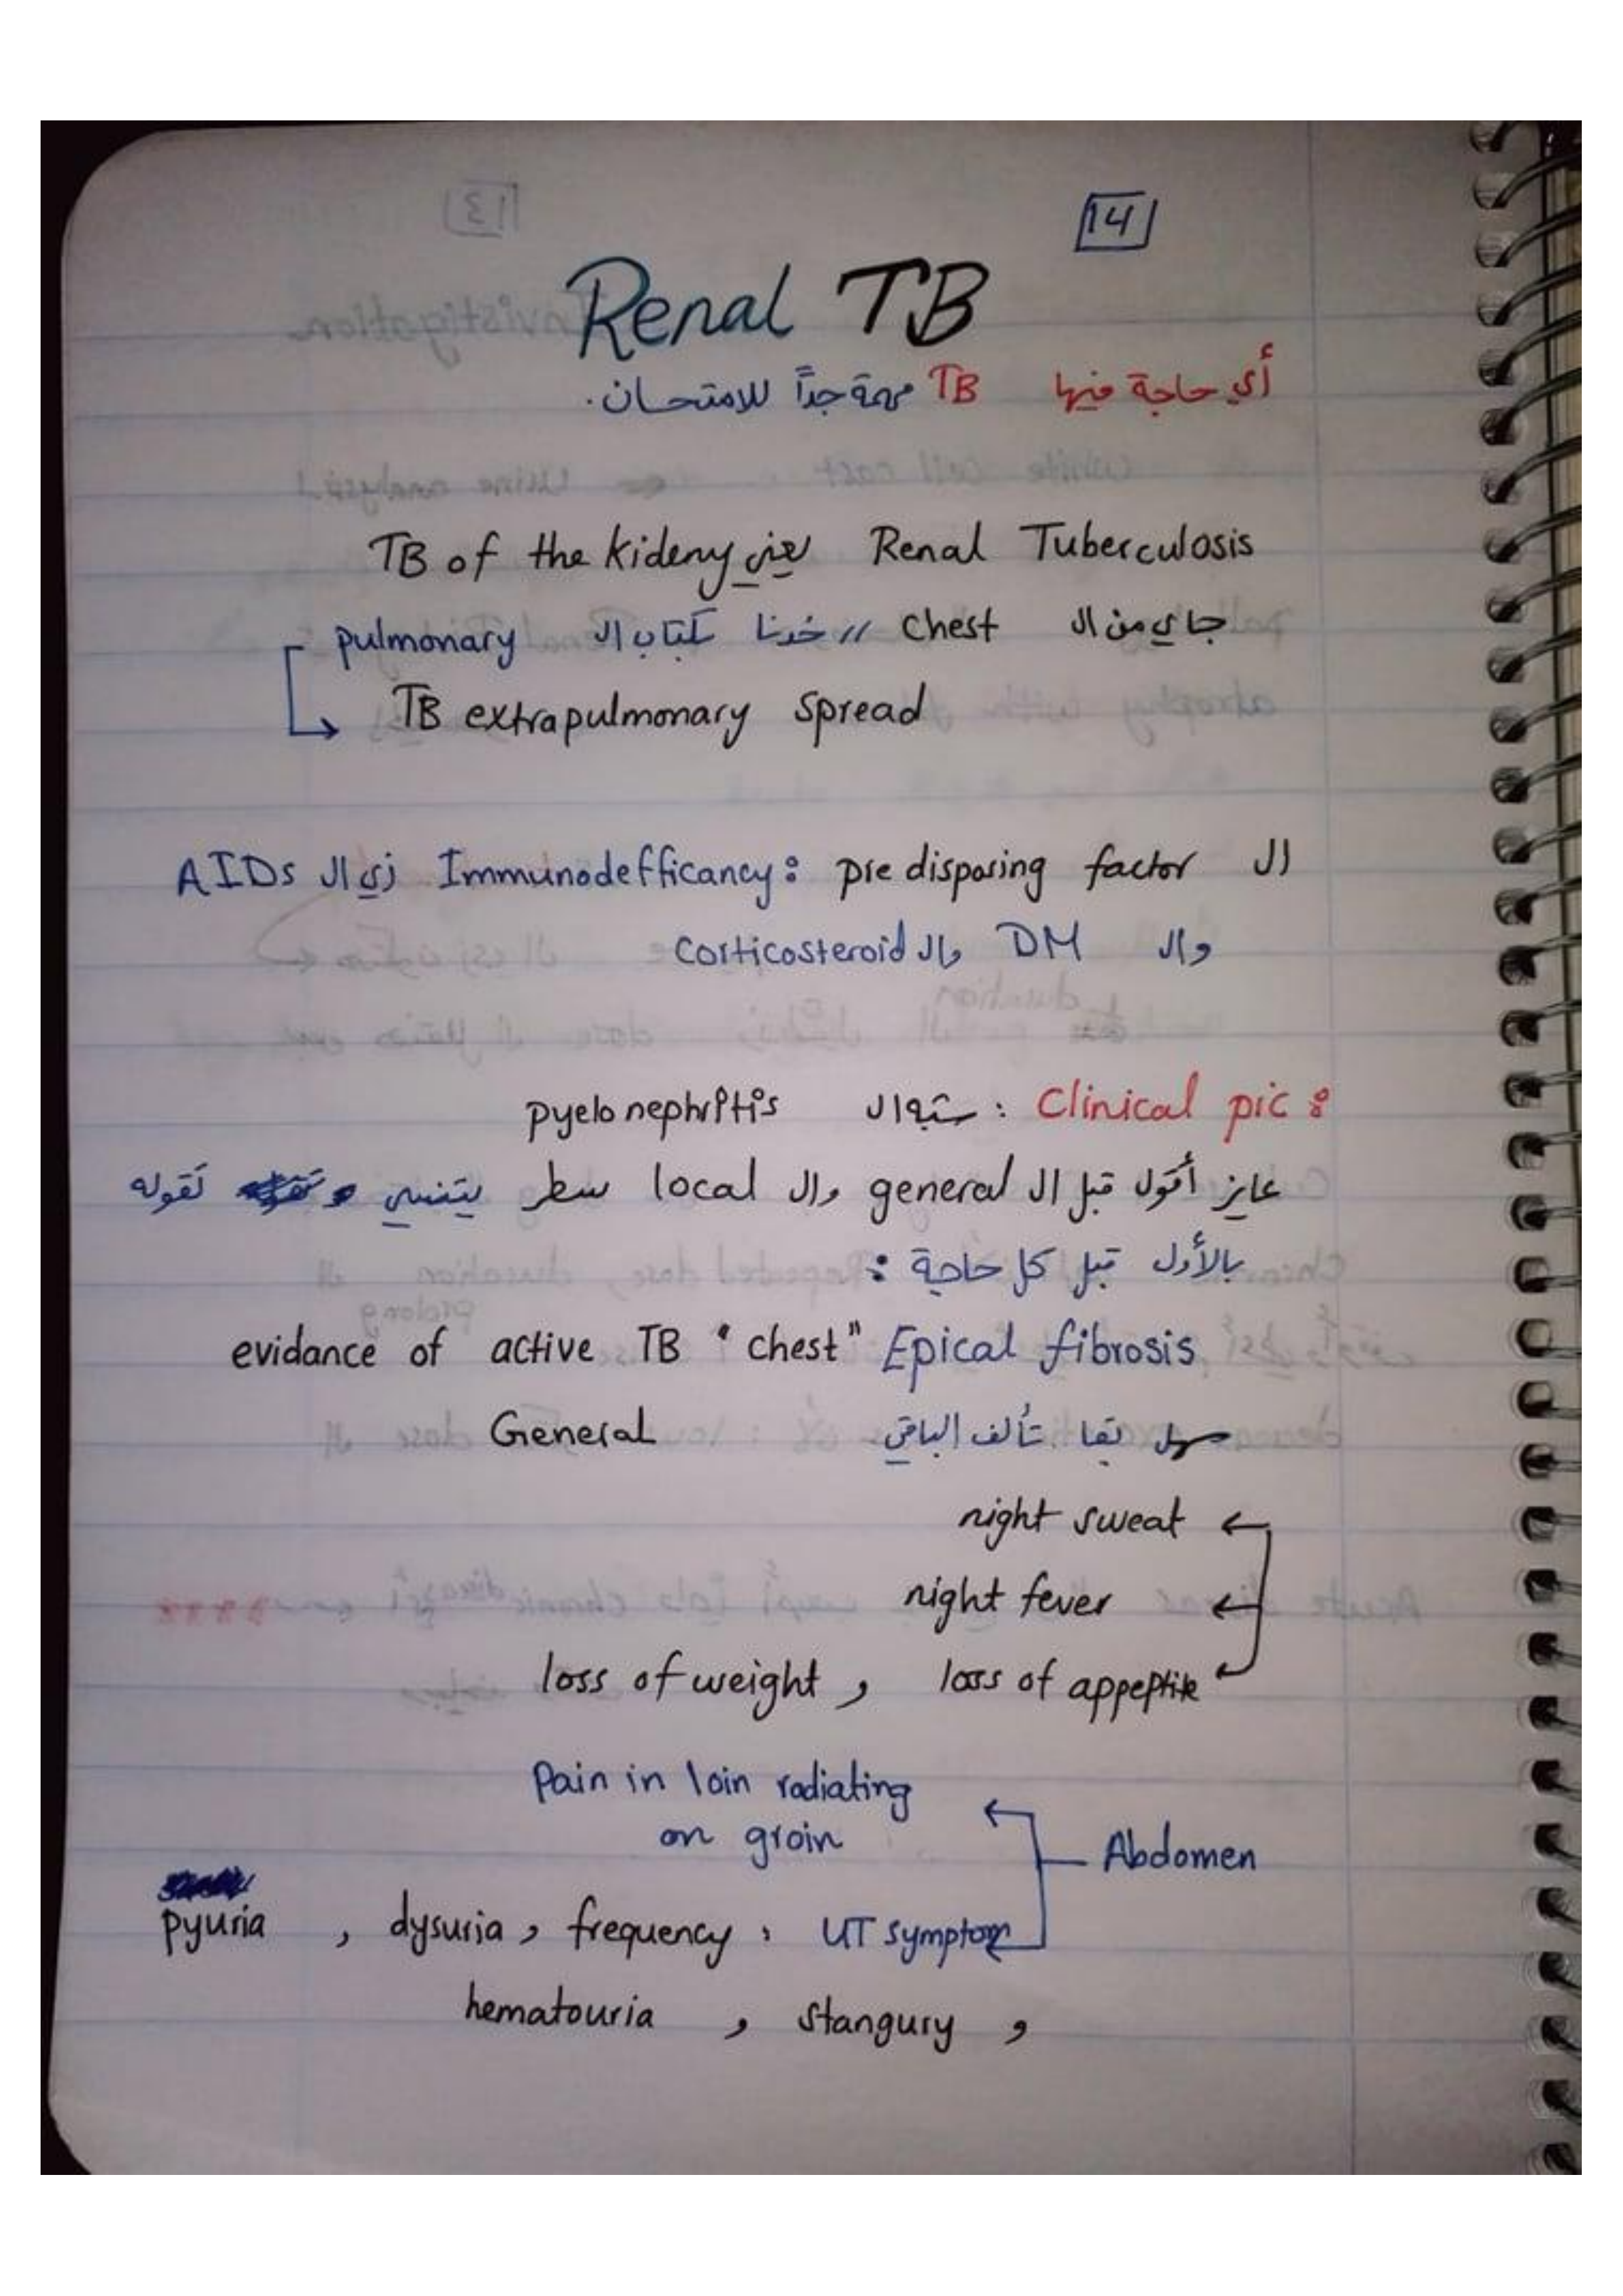 14
Renal TB
أي حاجة فيها TB مهمة جداً للامتحان.
Renal Tuberculosis يعني TB of the kideny
جاي من ال chest // خدنا كتاب ال pulmonary
TB extrapulmonary spread
ال pre disposing factor : Immunodefficancy زي ال AIDs
وال DM وال corticosteroid
Clinical pic : ستبه ال pyelonephritis
عايز أقول قبل ال general وال local سطر يتنسي تقوله
بالأول قبل كل حاجة :
evidance of active TB "chest" Epical fibrosis
سهل بقا تألف الباقي General
night sweat
night fever
loss of appeptite , loss of weight
Pain in loin radiating
on groin
Abdomen
UT symptom : frequency , dysuria , pyuria
, stangury , hematouria